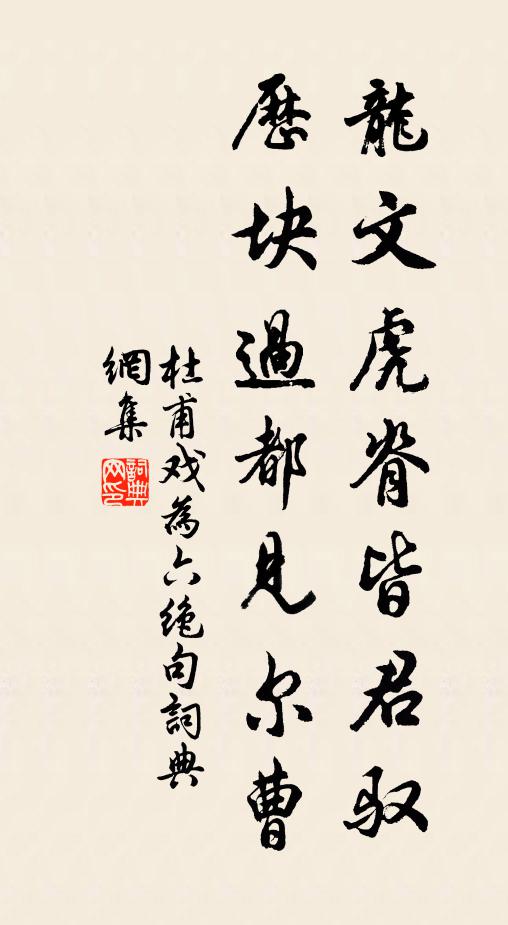 龍文虎脊皆君馭
歷块過都見尔曹
杜甫戏為六绝句詞典
網集
詞典网印